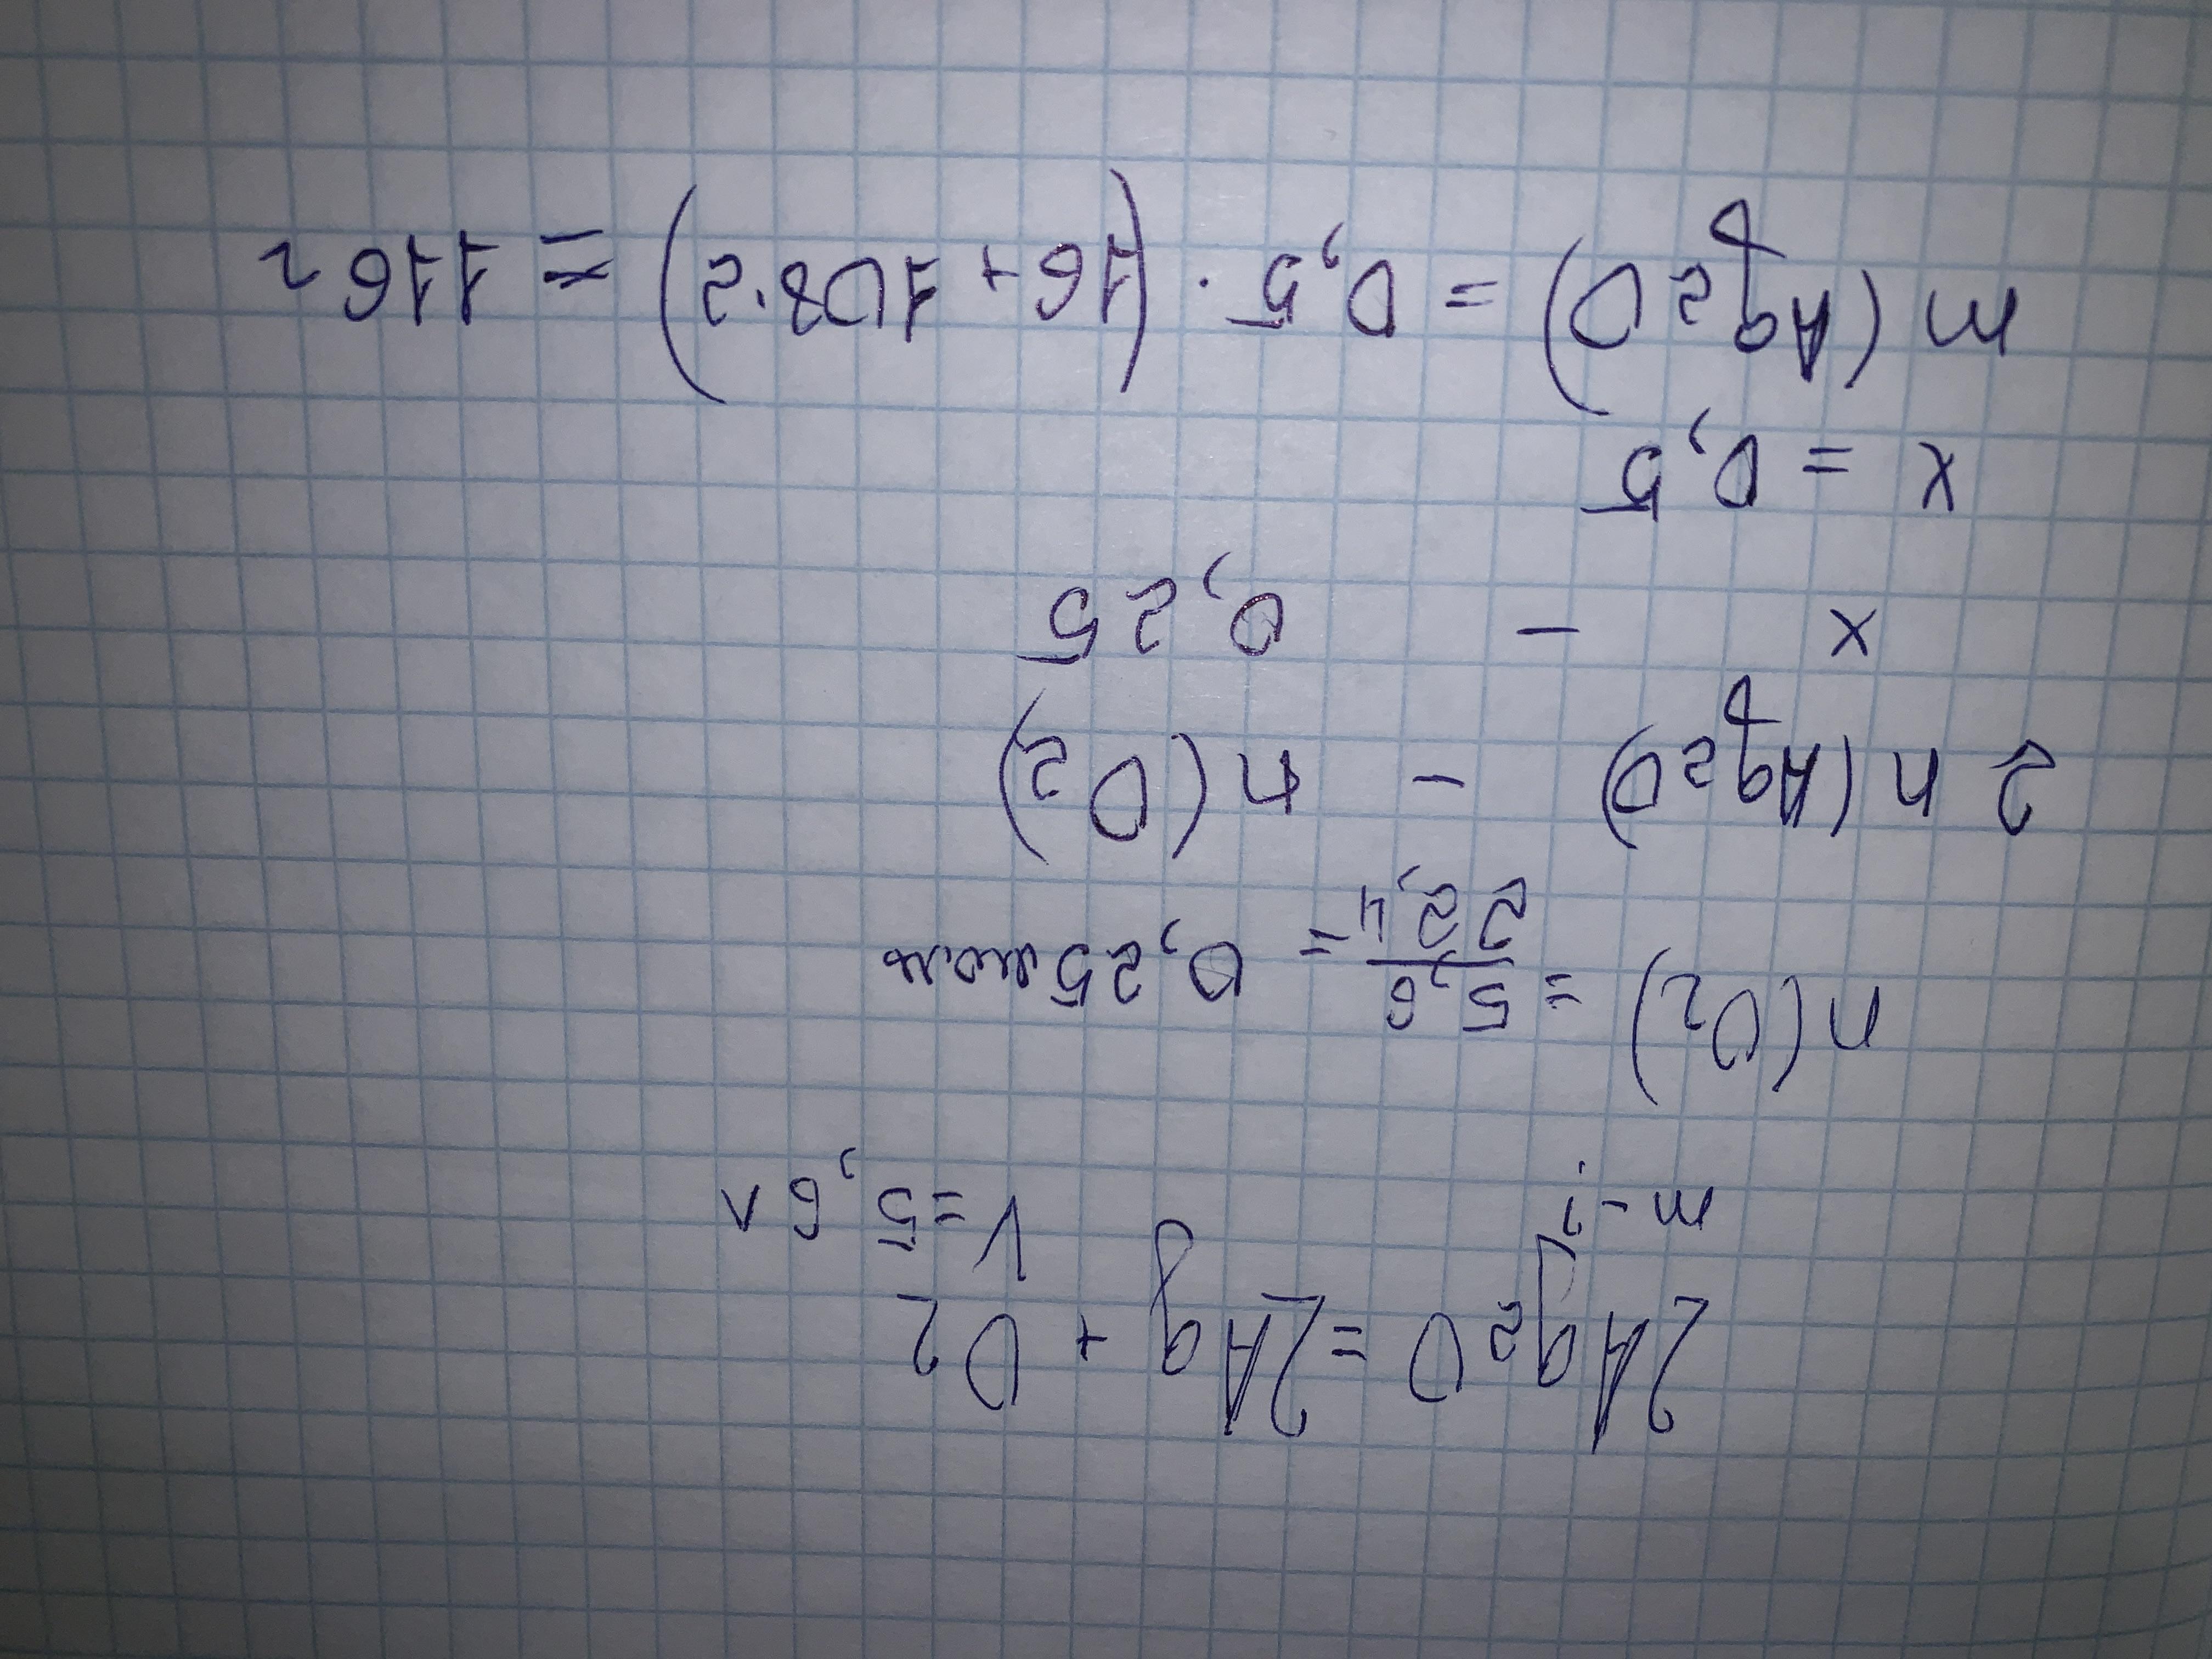 2Ag2O = 2Ag + O2
m-? V=5,6л
n(O2) = 5,6/22,4 = 0,25 моль
2 n(Ag2O) - n(O2)
x - 0,25
x = 0,5
m(Ag2O) = 0,5 · (16+108·2) = 116г